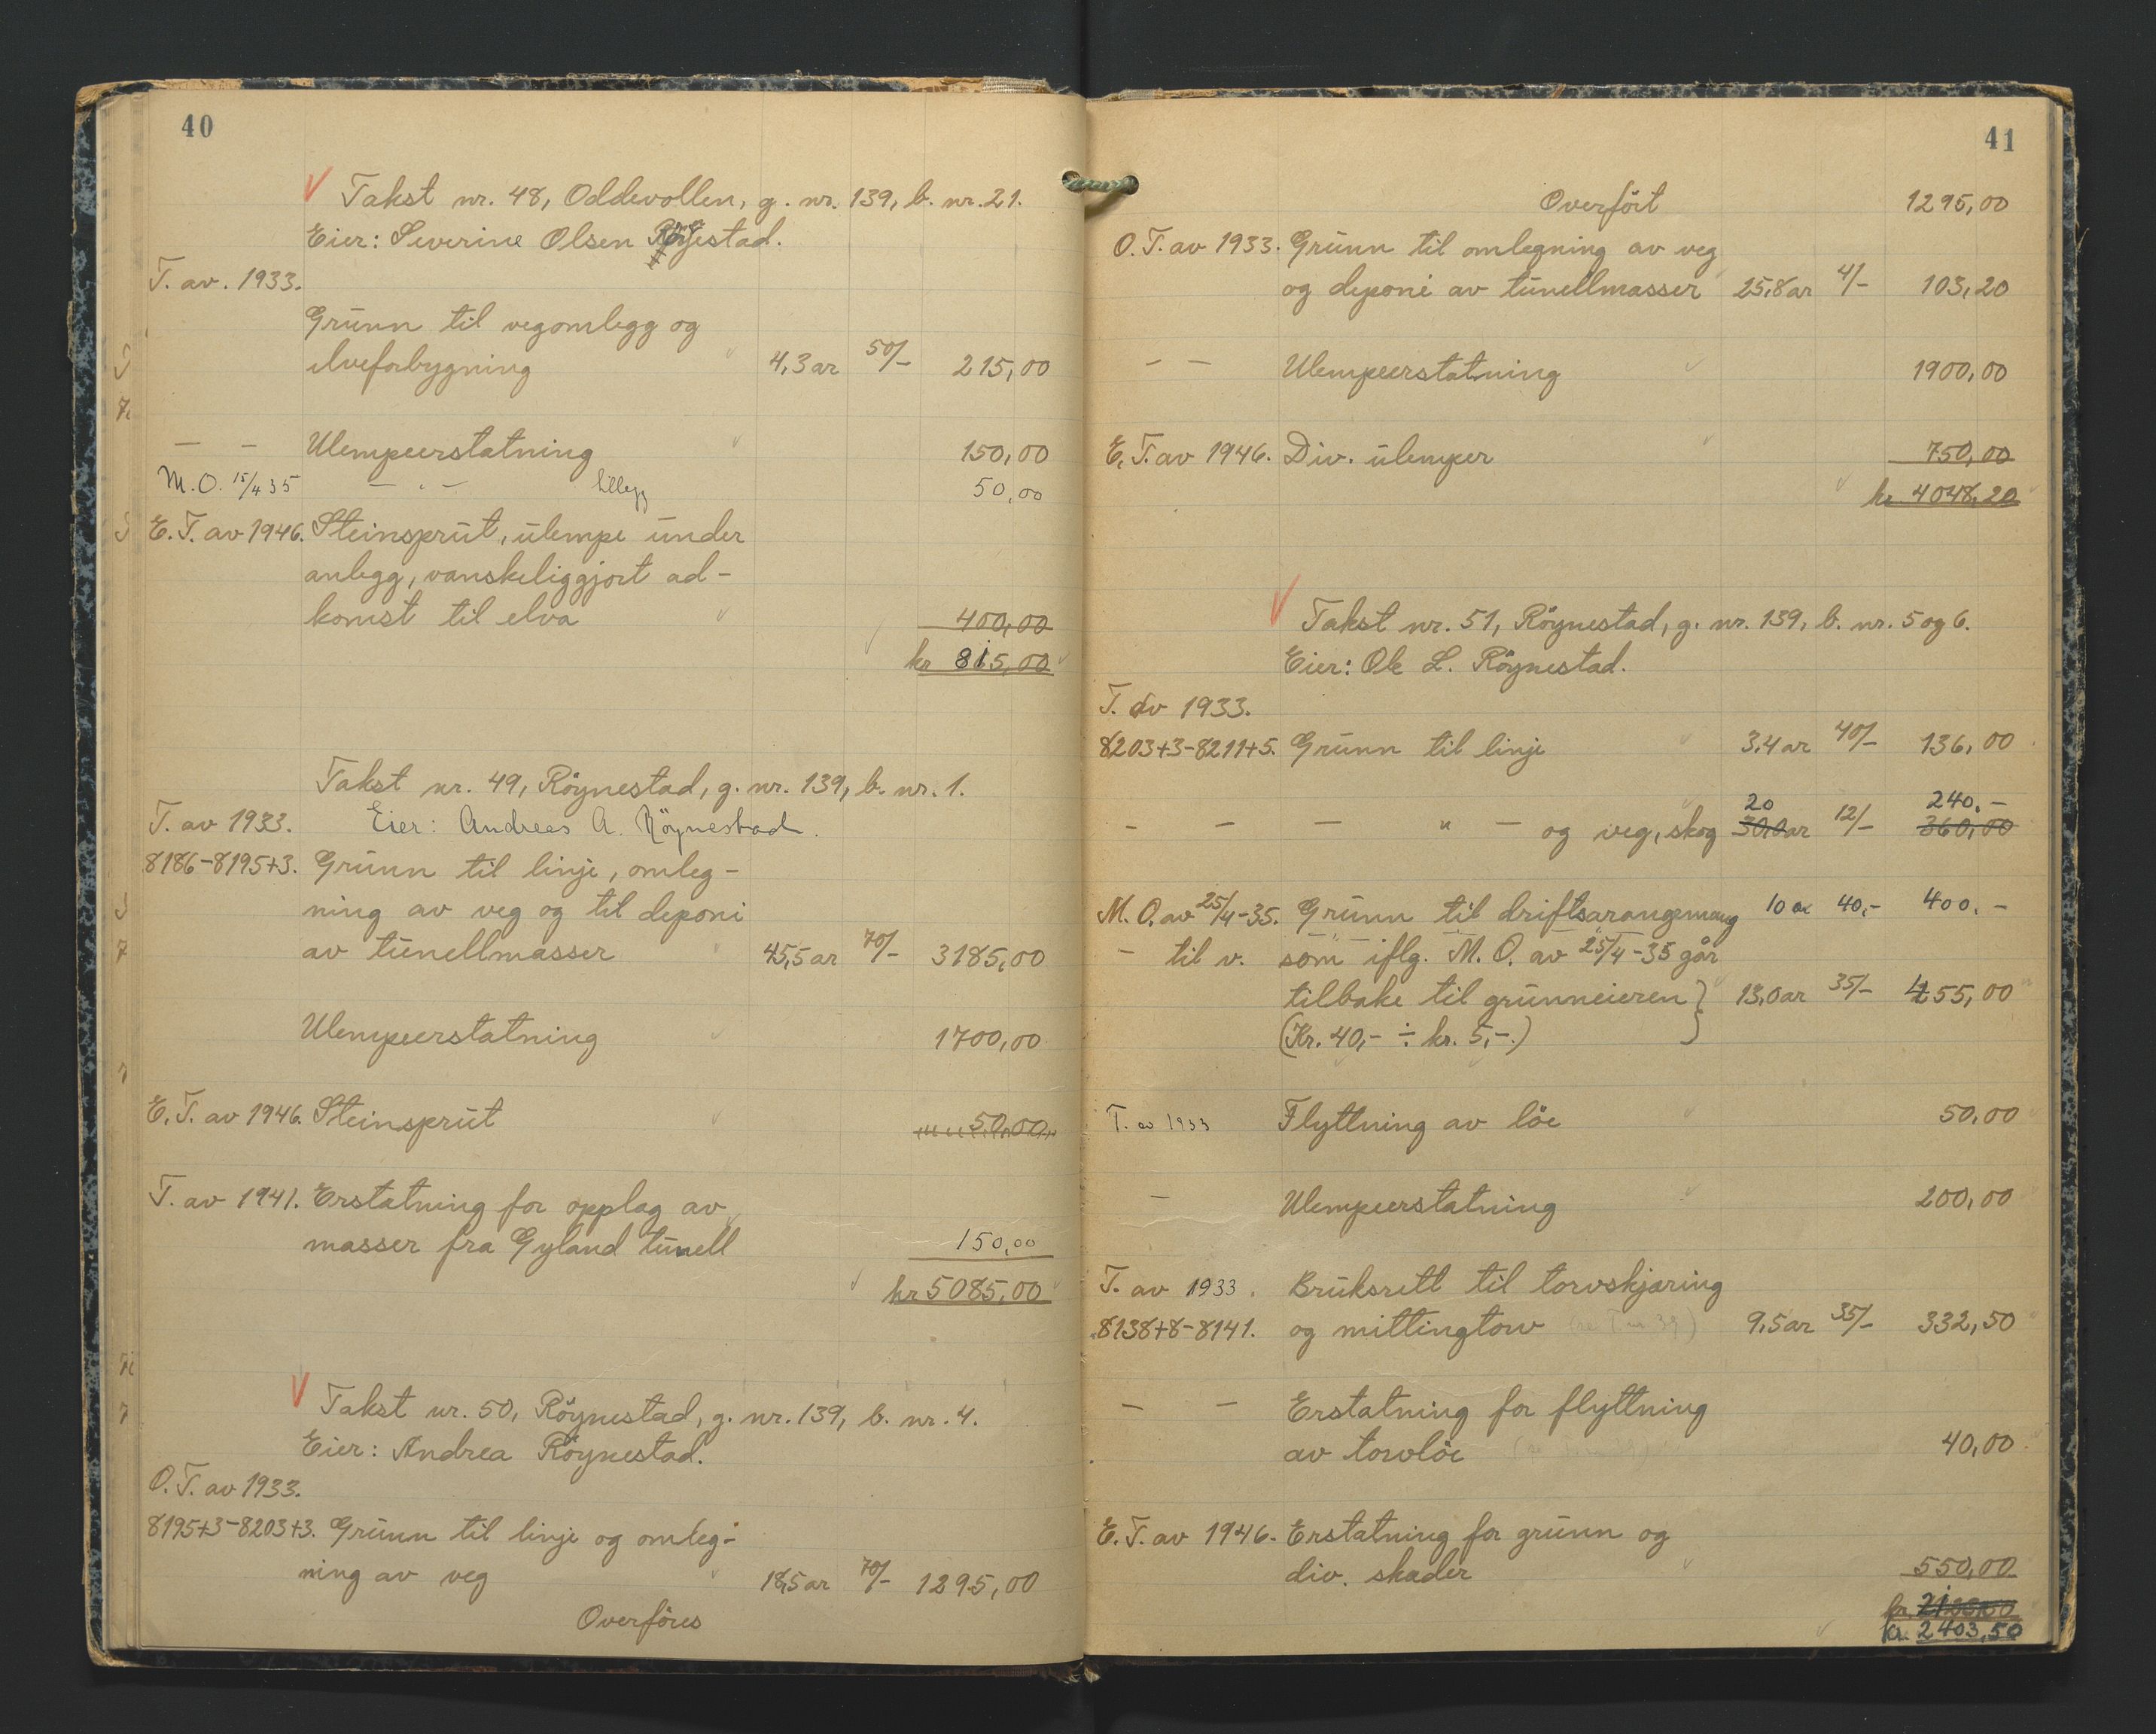 40
Takst nr. 48, Oddevollen, g. nr. 139, b. nr. 21.
Eier: Severine Olsen Röynestad.
T. av. 1933.
Grunn til vegomlegg og
elveforbygning 4,3 ar 50/- 215,00
— — Ulempeerstatning 150,00
M.O. 15/4 35 — " — tillegg 50,00
E. T. av 1946. Steinsprut, ulempe under
anlegg, vanskeliggjort ad-
komst til elva 400,00
kr 815,00
Takst nr. 49, Röynestad, g. nr. 139, b. nr. 1.
T. av 1933. Eier: Andreas A. Röynestad.
8186-8195+3. Grunn til linje, omleg-
ning av veg og til deponi
av tunellmasser 45,5 ar 70/- 3185,00
Ulempeerstatning 1700,00
E. T. av 1946. Steinsprut 50,00
T. av 1941. Erstatning for opplag av
masser fra Gyland tunell 150,00
kr 5085,00
Takst nr. 50, Röynestad, g. nr. 139, b. nr. 4.
Eier: Andrea Röynestad.
O. T. av 1933.
8195+3-8203+3. Grunn til linje og omleg-
ning av veg 18,5 ar 70/- 1295,00
Overföres
41
Overfört 1295,00
O. T. av 1933. Grunn til omlegning av veg
og deponi av tunellmasser 25,8 ar 4/- 103,20
— — Ulempeerstatning 1900,00
E. T. av 1946. Div. ulemper 750,00
kr 4048,20
Takst nr. 51, Röynestad, g. nr. 139, b. nr. 5 og 6.
Eier: Ole L. Röynestad.
T. av 1933.
8203+3-8211+5. Grunn til linje 3,4 ar 40/- 136,00
20 240.-
- - — " — og veg, skog 30,0 ar 12/- 360,00
M. O. av 25/4-35. Grunn til driftsarangemang 10 ar 40,- 400.-
- til v. som iflg. M. O. av 25/4-35 går
tilbake til grunneieren } 13,0 ar 35/- 455,00
(Kr. 40,- ÷ kr. 5,-.)
T. av 1933 Flyttning av löe 50,00
- Ulempeerstatning 200,00
T. av 1933. Bruksrett til torvskjæring
8138+8-8141. og mittingtorv 9,5 ar 35/- 332,50
— — Erstatning for flyttning
av torvlöe 40,00
E. T. av 1946. Erstatning for grunn og
div. skader 550,00
kr. 2403,50